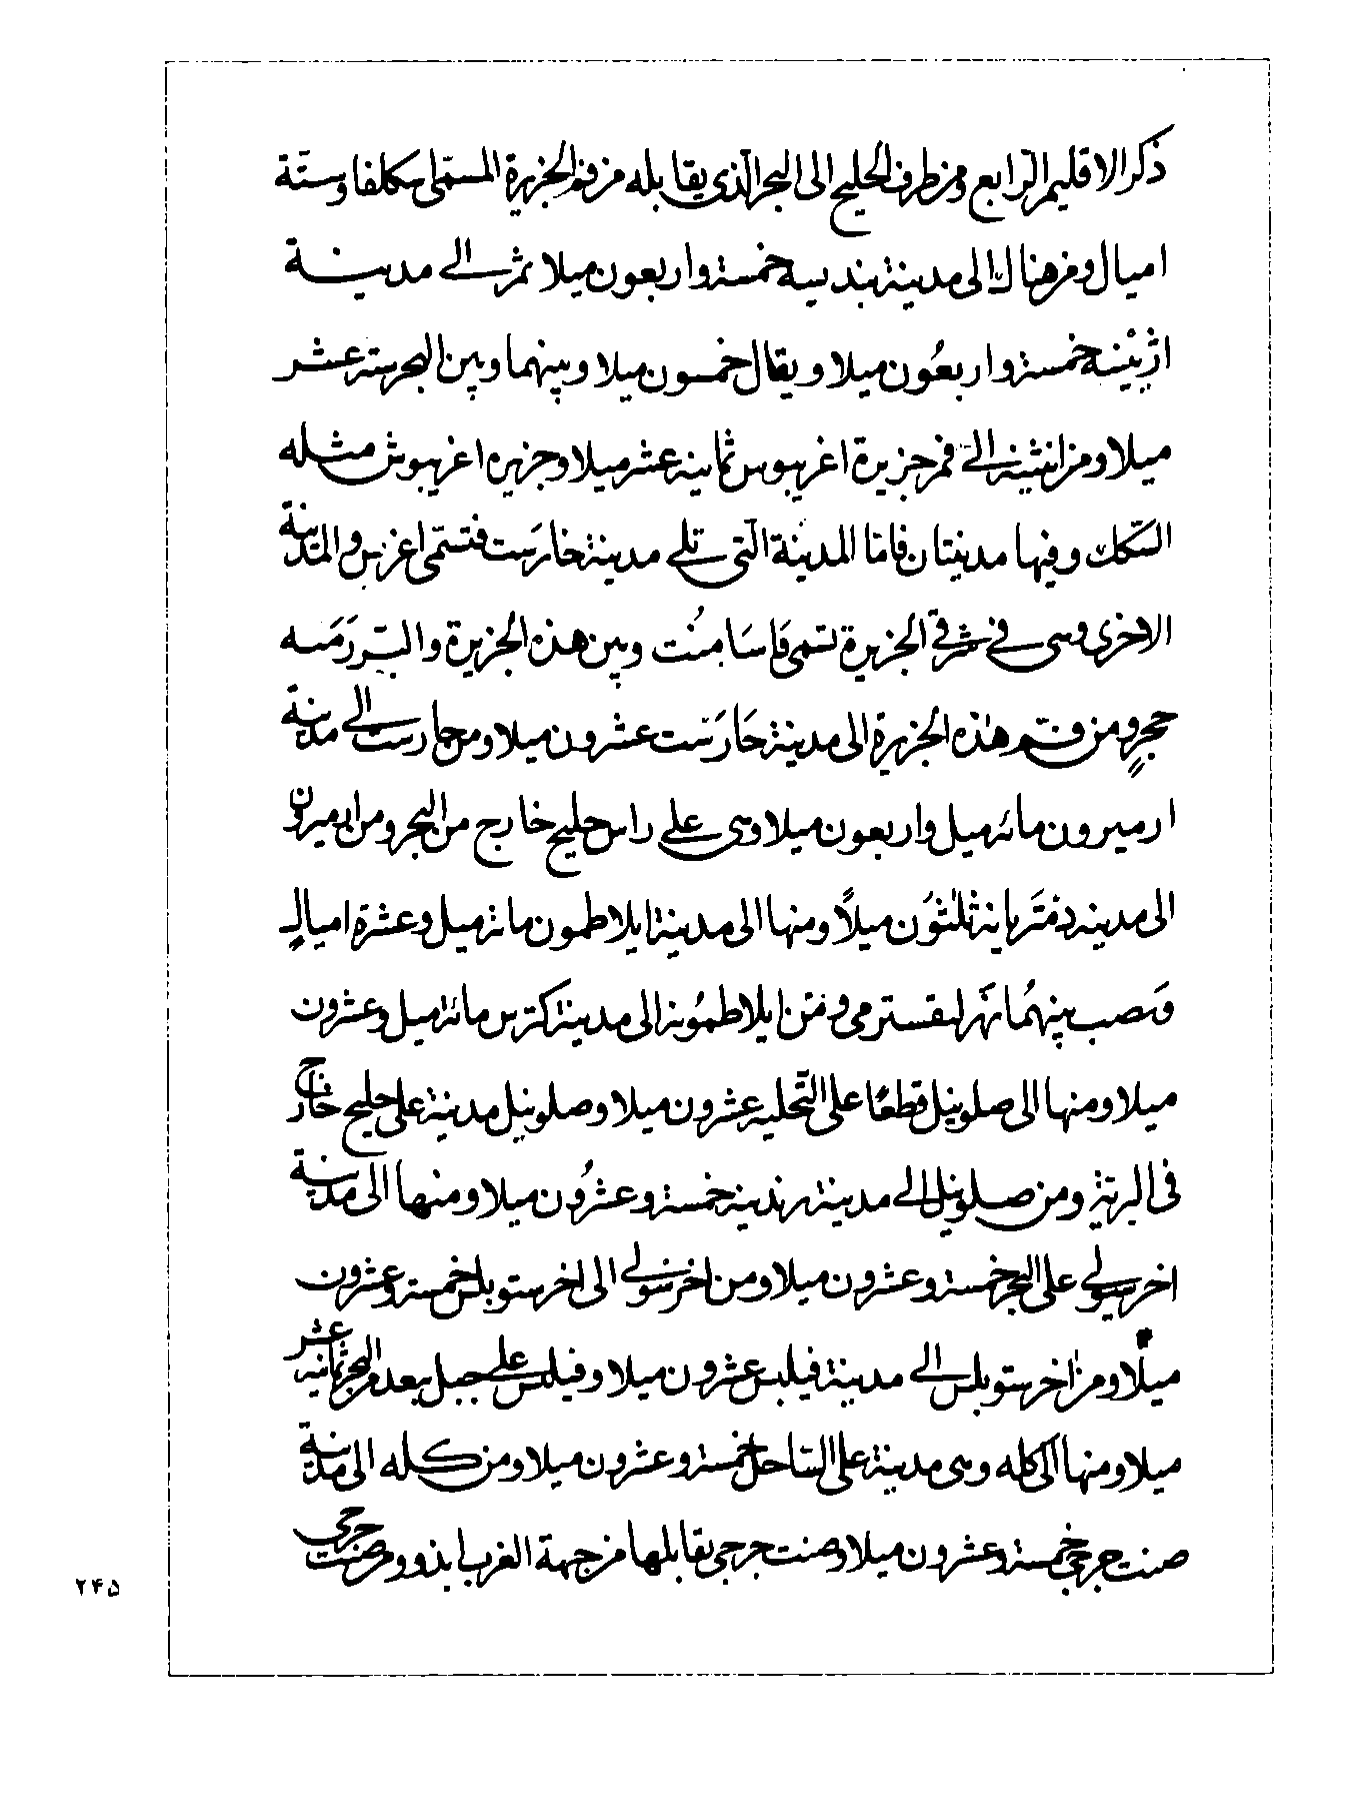 ذكر الاقليم الرابع ومن طرف الخليج الى البحر الذى يقابله من فم الجزيرة المسمى اسكلفا وستة
اميال ومن هناك الى مدينة بندسيه خمسة واربعون ميلا ثم الى مدينة
اثينه خمسة واربعون ميلا ويقال خمسون ميلا وبينهما وبين البحر ستة عشر
ميلا ومن اثينه الى فم جزيرة اغريبوس ثمانية عشر ميلا وجزيره اغريبوش مثله
الشكل وفيها مدينتان فاما المدينة التى تلى مدينة خارست فتسمى اغربس والمدينة
الاخرى وهى فى شرقى الجزيرة تسمى قاسامنت وبين هذه الجزيرة والبر رمية
حجر ومن فم هذه الجزيرة الى مدينة حارست عشرون ميلا ومن حارست الى مدينة
ارميرون مائة ميل واربعون ميلا وهى على راس خليج خارج من البحر ومن ارميرون
الى مدينه دمتريانة ثلثون ميلا ومنها الى مدينة ايلاطمون مائة ميل وعشرة اميال
ومصب بينهما نهر لىقسترمى ومن ايلاطمونة الى مدينة كترس مائة ميل وعشرون
ميلا ومنها الى صلوبيل قطعا على التحليه عشرون ميلا وصلونيل مدينة على خليج خارج
فى البرية ومن صلونيل الى مدينة رندينة خمسة وعشرون ميلا ومنها الى مدينة
اخرسولى على البحر خمسة وعشرون ميلا ومن اخرسولى الى اخرستوبلس خمسة وعشرون
ميلا ومن اخرستوبلس الى مدينة فيلبس عشرون ميلا وفيلبس على جبل يبعد من البحر ثمانية عشر
ميلا ومنها الى كله وهى مدينة على الساحل خمسة وعشرون ميلا ومن كله الى مدينة
صنت جرجى خمسة وعشرون ميلا وصنت جرجى يقابلها من جهة الغرب ابذو ومن صنت جرجى
۲۴۵